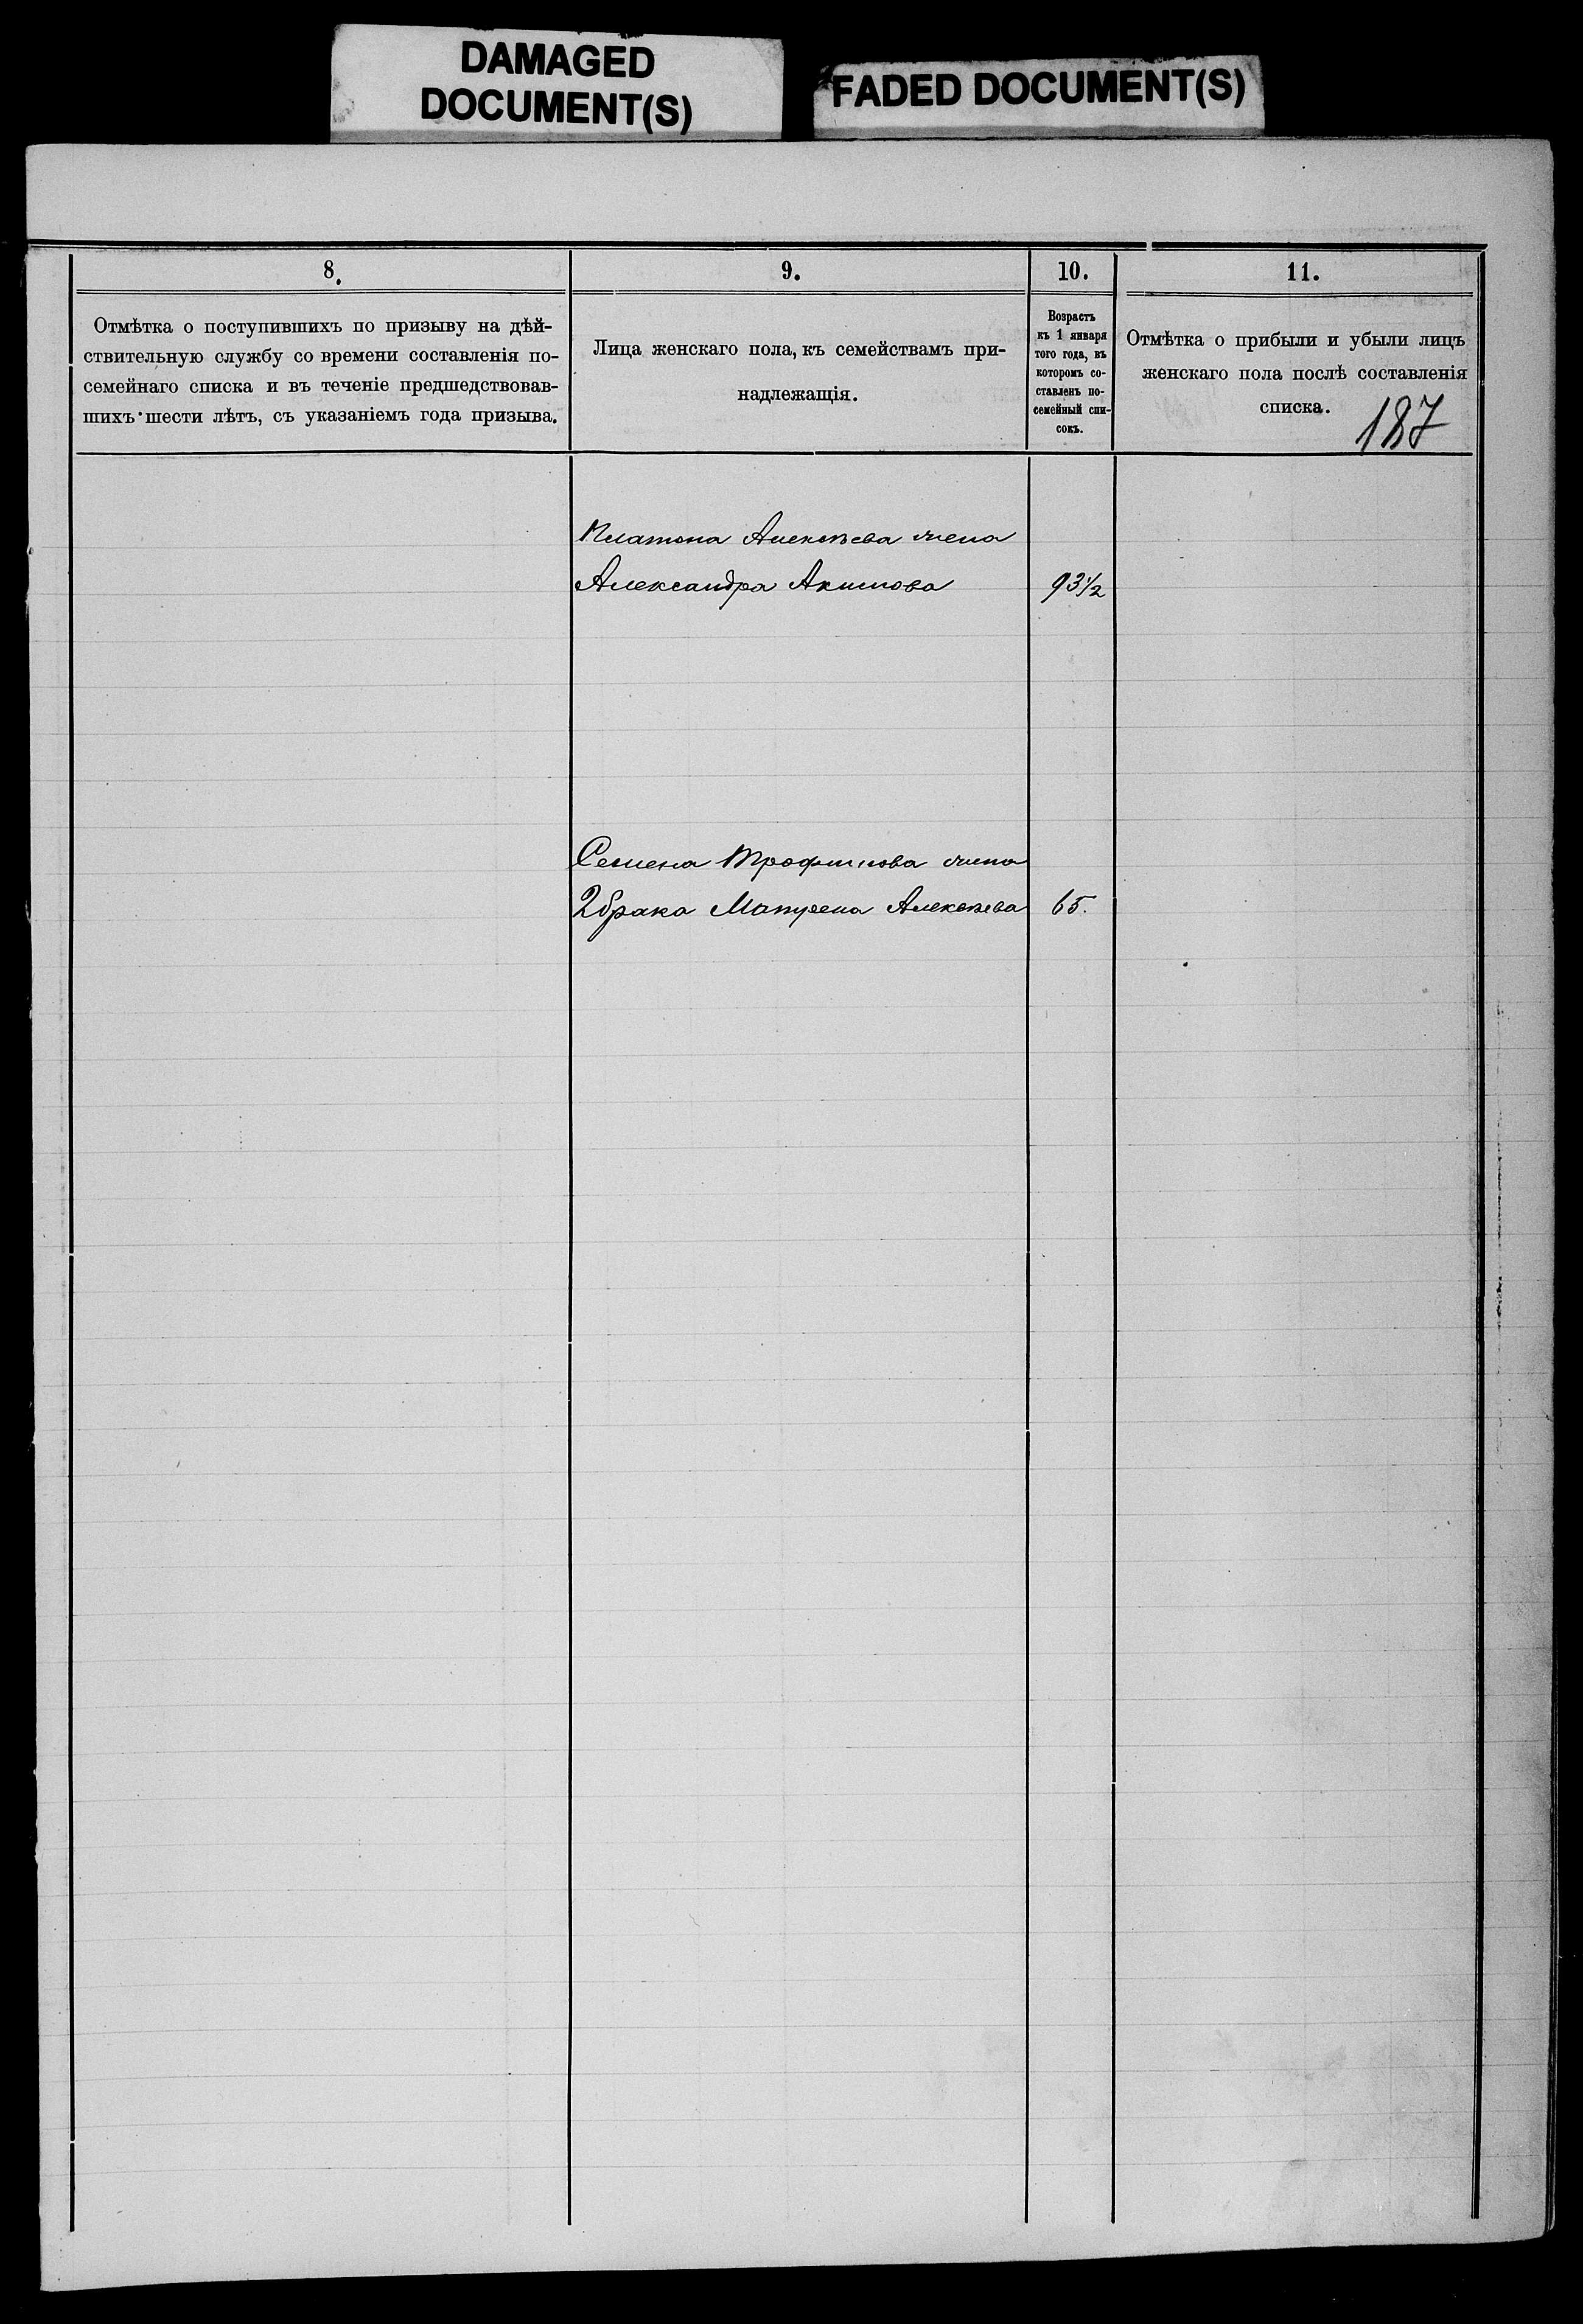 DAMAGED
DOCUMENT(S)
FADED DOCUMENT(S)
8.
Отмѣтка о поступившихъ по призыву на дѣй-
ствительную службу со времени составленія по-
семейнаго списка и въ теченіе предшедствовав-
шихъ шести лѣтъ, съ указаніемъ года призыва.
9.
Лица женскаго пола, къ семействамъ при-
надлежащія.
10.
Возрастъ
къ 1 января
того года, въ
которомъ со-
ставленъ по-
семейный спи-
сокъ.
11.
Отмѣтка о прибыли и убыли лицъ
женскаго пола послѣ составленія
списка.
187
Платона Алексѣева жена
Александра Акимова 93 1/2
Семена Трофимова жена
2 брака Матрена Алексѣева 65.